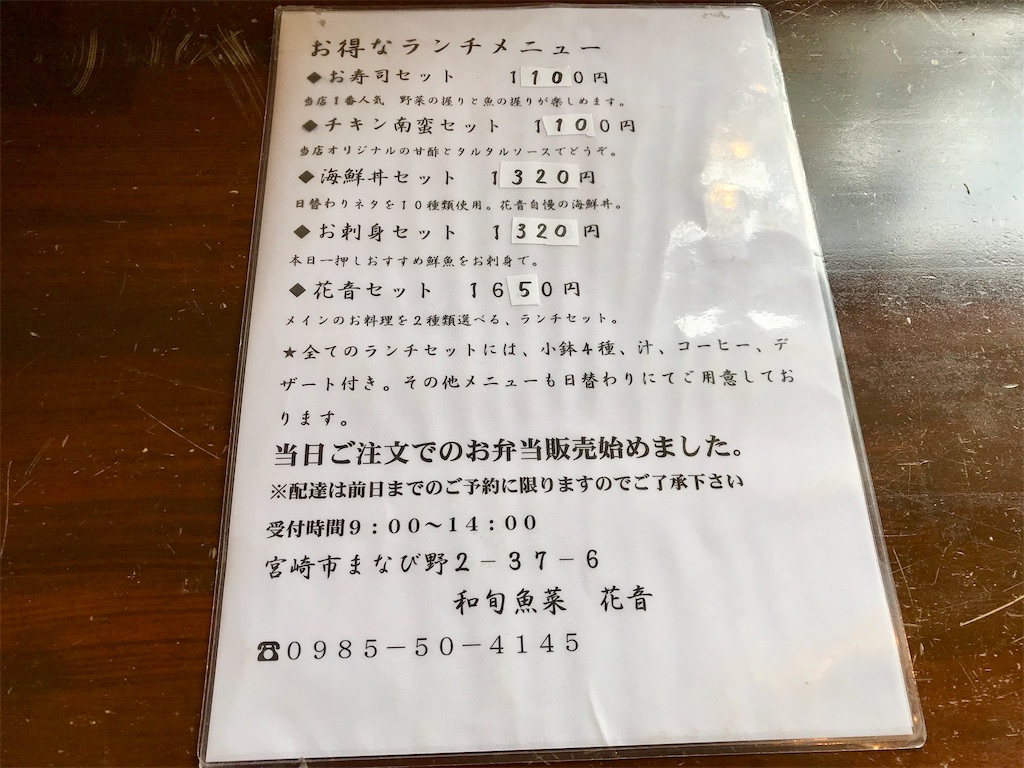 お得なランチメニュー
◆お寿司セット 1100円
当店1番人気 野菜の握りと魚の握りが楽しめます。
◆チキン南蛮セット 1100円
当店オリジナルの甘酢とタルタルソースでどうぞ。
◆海鮮丼セット 1320円
日替わりネタを10種類使用。花音自慢の海鮮丼。
◆お刺身セット 1320円
本日一押しおすすめ鮮魚をお刺身で。
◆花音セット 1650円
メインのお料理を2種類選べる、ランチセット。
★全てのランチセットには、小鉢4種、汁、コーヒー、デ
ザート付き。その他メニューも日替わりにてご用意してお
ります。
当日ご注文でのお弁当販売始めました。
※配達は前日までのご予約に限りますのでご了承下さい
受付時間9:00〜14:00
宮崎市まなび野2－37－6
和旬魚菜 花音
☎0985－50－4145